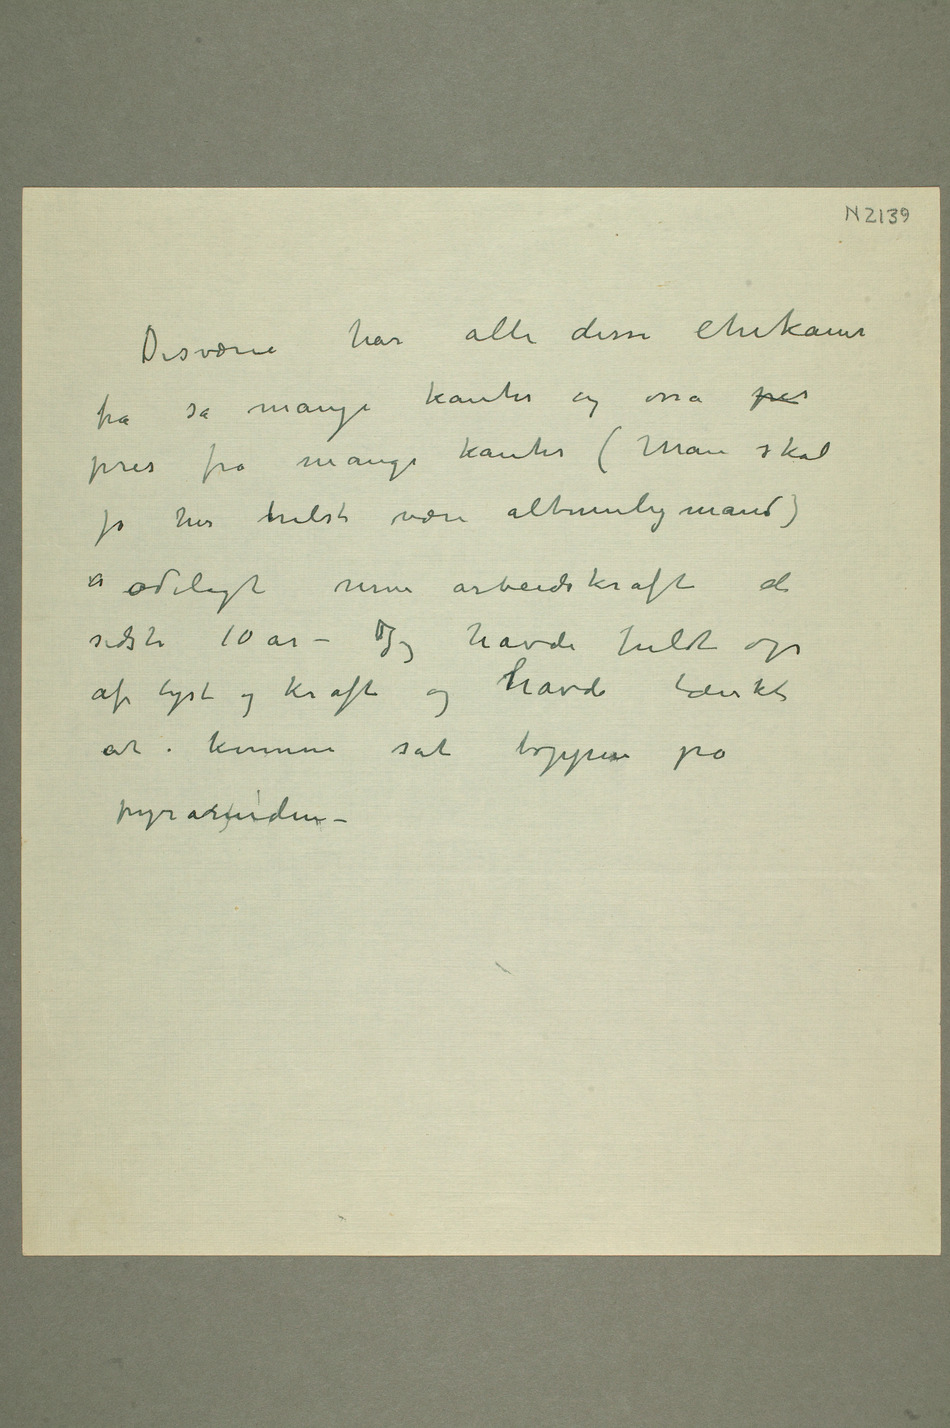 N 2139
Desværre har alle disse chikaner
fra så mange kanter og osså pres
pres fra mange kanter (Man skal
jo her helst være altmuligmand)
ødelagt min arbeidskraft de
sidste 10 år – Jeg havde huldt op
af lyst og kraft og havde tænkt
at kunne sat toppen på
pyramiden –